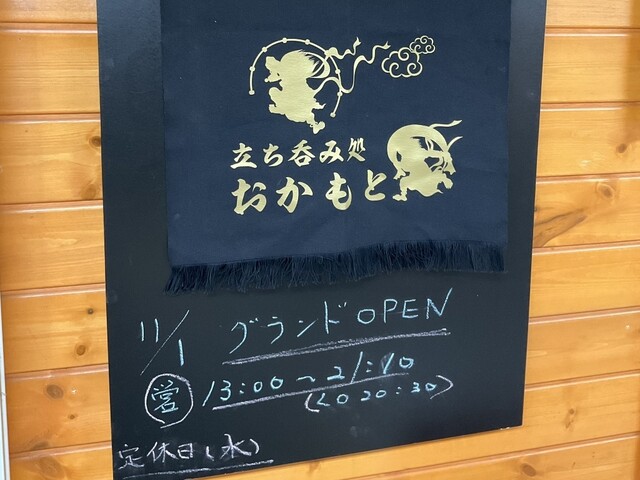 立ち呑み処
おかもと
11/1 グランドOPEN
営 13:00～21:10
(LO 20:30)
定休日(水)